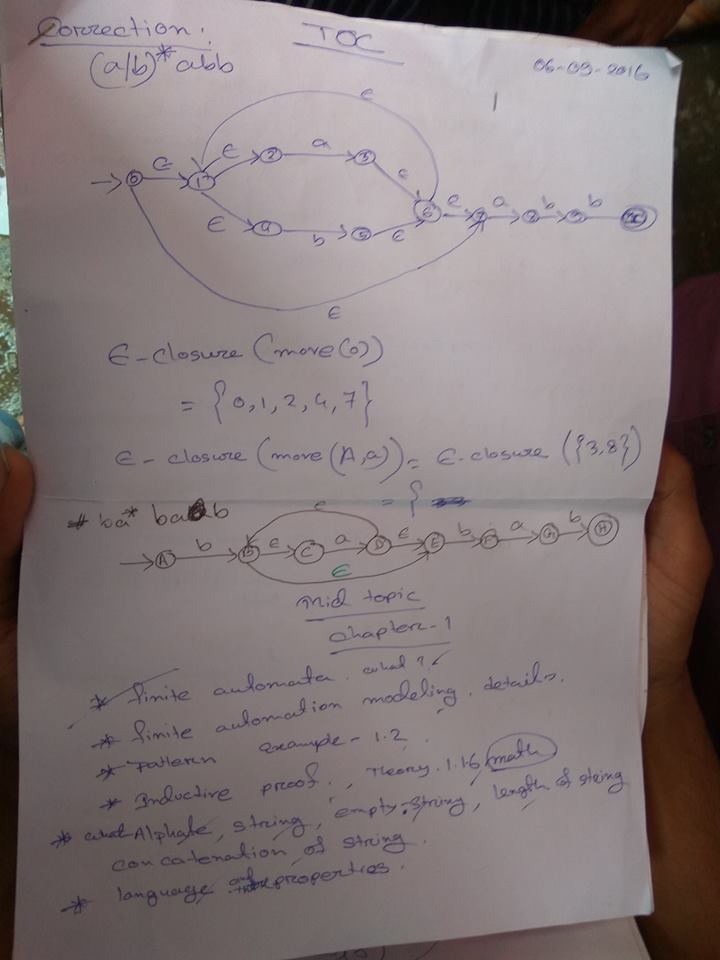 Correction:
TOC
(a/b)* abb
06-09-2016
ε
0 ε 1 ε 2 a 3 ε
ε 4 b 5 ε 6 ε 7 a b b
ε
ε-closure (move(0))
= {0,1,2,4,7}
ε-closure (move(A,a)) = ε-closure ({3,8})
= {
# ba* bab
ε
A b B ε C a D ε E b F a G b H
ε
Mid topic
Chapter-1
* finite automata. what?
* finite automation modeling. details.
* Pattern example - 1.2.
* Inductive proof., Theory. 1.16 math
* what Alphate, string, empty string, length of string
concatenation of string.
* language properties.